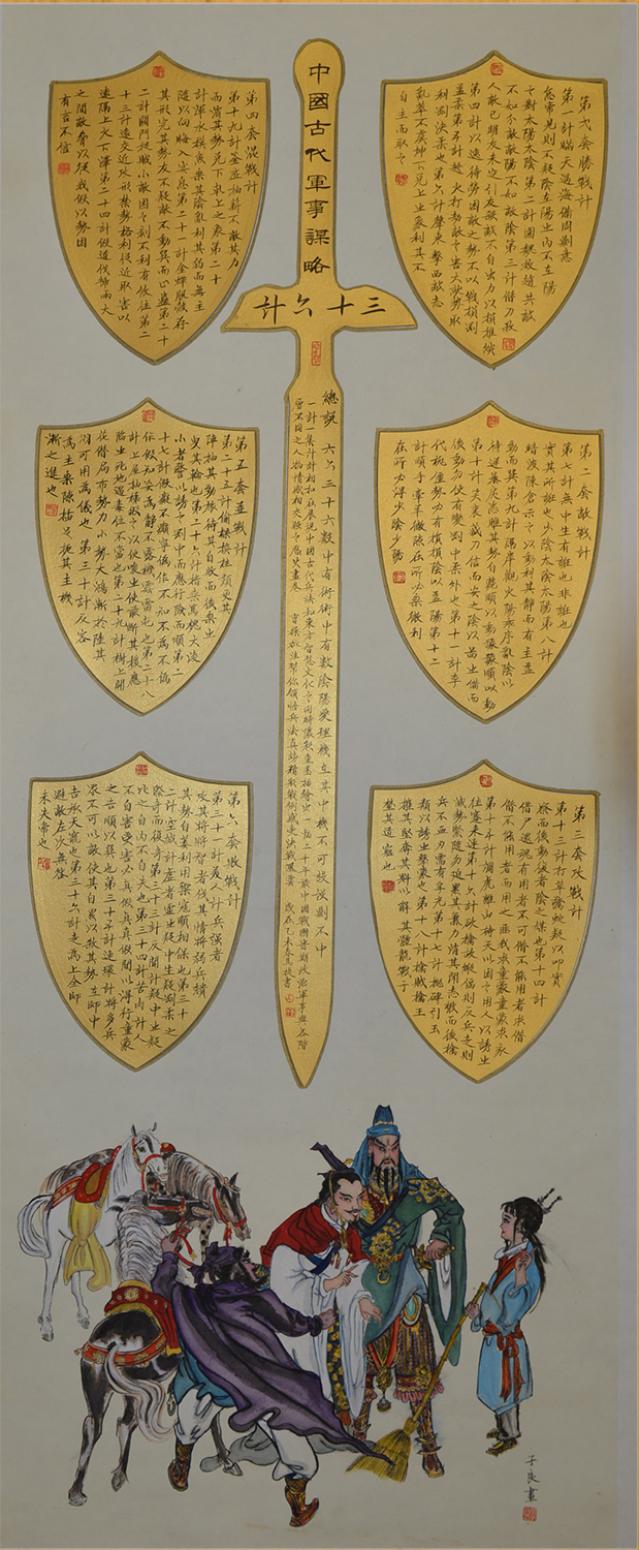 中國古代軍事謀略
三十六計
總說 六六三十六數中有術術中有數陰陽燮理機在其中機不可設設則不中
第一套勝戰計
第一計瞞天過海備周則意
怠常見則不疑陰在陽之內不在陽
之對太陽太陰第二計圍魏救趙共敵
不如分敵敵陽不如敵陰第三計借刀殺
人敵已明友未定引友殺敵不自出力以損推演
第四計以逸待勞困敵之勢不以戰損剛
益柔第五計趁火打劫敵之害大就勢取
利剛決柔也第六計聲東擊西敵志
亂萃不虞坤下兌上之象利其不
自主而取之
第二套敵戰計
第七計無中生有誑也非誑也
實其所誑也少陰太陰太陽第八計
暗渡陳倉示之以動利其靜而有主益
動而巽第九計隔岸觀火陽乖序亂陰以
待逆暴戾恣睢其勢自斃順以動豫豫順以動
第十計笑裏藏刀信而安之陰以圖之備而
後動勿使有變剛中柔外也第十一計李
代桃僵勢必有損損陰以益陽第十二
計順手牽羊微隙在所必乘微利
在所必得少陰少陽
第三套攻戰計
第十三計打草驚蛇疑以叩實
察而後動復者陰之媒也第十四計
借尸還魂有用者不可借不能用者求借
借不能用者而用之匪我求童蒙童蒙求我
第十五計調虎離山待天以困之用人以誘之
往蹇來連第十六計欲擒故縱逼則反兵走則
減勢緊隨勿迫累其氣力消其鬥志散而後擒
兵不血刃需有孚光第十七計拋磚引玉
類以誘之擊蒙也第十八計擒賊擒王
摧其堅奪其魁以解其體龍戰于
野其道窮也
第四套混戰計
第十九計釜底抽薪不敵其力
而消其勢兌下乾上之象第二十
計渾水摸魚乘其陰亂利其弱而無主
隨以向晦入宴息第二十一計金蟬脫殼存
其形完其勢友不疑敵不動巽而止蠱第二十
二計關門捉賊小敵困之剝不利有攸往第二
十三計遠交近攻形禁勢格利從近取害以
遠隔上火下澤第二十四計假道伐虢兩大
之間敵脅以從我假以勢困
有言不信
第五套並戰計
第二十五計偷樑換柱頻更其
陣抽其勁旅待其自敗而後乘之
曳其輪也第二十六計指桑罵槐大凌
小者警以誘之剛中而應行險而順第二
十七計假癡不癲寧偽作不知不為不偽
作假知妄為靜不露機雲雷屯也第二十八
計上屋抽梯
陷之死地遇毒位不當也第二十九計樹上開
花借局布勢力小勢大鴻漸於陸其
羽可用為儀也第三十計反客
為主乘隙插足扼其主機
漸之進也
第六套敗戰計
第三十一計美人計兵強者
攻其將將智者伐其情將弱兵頹
其勢自萎利用禦寇順相保也第三十
二計空城計虛者虛之疑中生疑剛柔之
際奇而復奇第三十三計反間計疑中之疑
比之自內不自失也第三十四計苦肉計人
不自害受害必真假真真假間以得行童蒙
之吉順以巽也第三十五計連環計將多兵
衆不可以敵使其自累以殺其勢在師中
吉承天寵也第三十六計走為上全師
避敵左次無咎
未失常也
子良畫